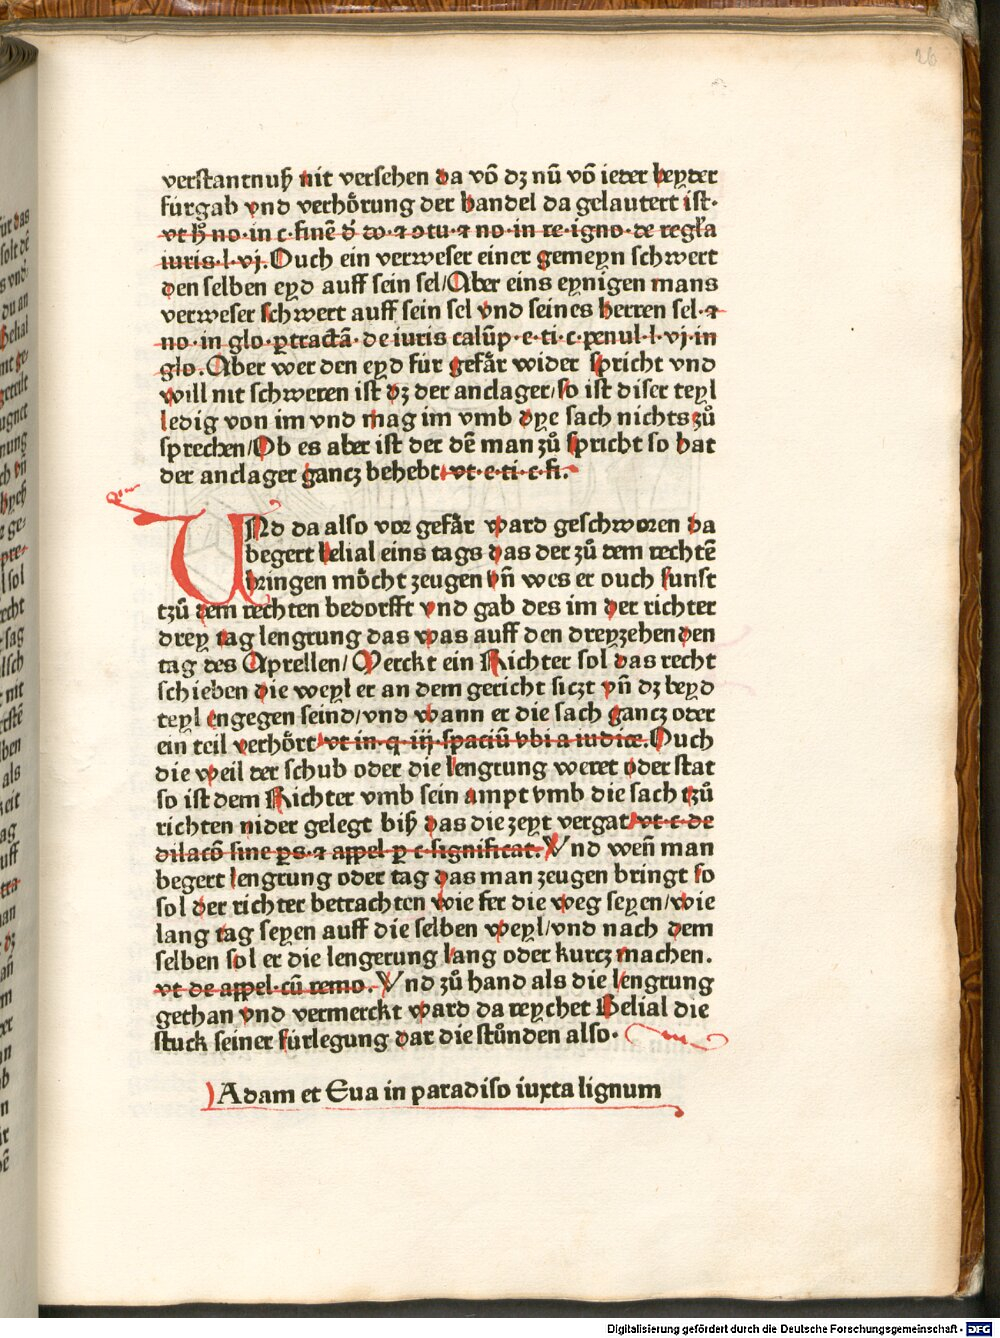 26
verstantnuß nit versehen da võ dz nũ võ ieter beyder
fürgab vnd verhörung der handel da gelautert ist·
vt h̃ no·in c·finẽ d̉ do·⁊ ɔtu·⁊ no·in re·igno·de regl̃a
iuris·l·vj·Ouch ein verweser einer gemeyn schwert
den selben eyd auff sein sel/Aber eins eynigen mans
verweser schwert auff sein sel vnd seines herren sel·⁊
no·in glo·ꝑtractã·de iuris calũp·e·ti·c·penul·l·vj·in
glo·Aber wer den eyd für gefär wider spricht vnd
will nit schweren ist dz der anclager/so ist diser teyl
ledig von im vnd mag im vmb dye sach nichts zů
sprechen/Ob es aber ist der dẽ man zů spricht so hat
der anclager gancz behebt·vt·e·ti·c·fi·
VNd da also vor gefär ward geschworen da
begert belial eins tags das der zů dem rechtẽ
bringen möcht zeugen vñ wes er ouch sunst
tzů dem rechten bedorfft vnd gab des im der richter
drey tag lengrung das was auff den dreyzehenden
tag des Aprellen/Merckt ein Richter sol das recht
schieben die weyl er an dem gericht siczt vñ dz beyd
teyl engegen seind/vnd wann er die sach gancz oder
ein teil verhört/vt in·q·iij·spaciũ vbi a iudice·Ouch
die weil der schub oder die lengrung weret oder stat
so ist dem Richter vmb sein ampt vmb die sach tzů
richten nider gelegt biß das die zeyt vergat/vt·c·de
dilacõ sine ꝑs·⁊ appel·ꝑ c·significat·Vnd weñ man
begert lengrung oder tag das man zeugen bringt so
sol der richter betrachten wie fer die weg seyen/wie
lang tag seyen auff die selben weyl/vnd nach dem
selben sol er die lengerung lang oder kurcz machen.
vt de appel·cũ remo·Vnd zů hand als die lengrung
gethan vnd vermerckt ward da reychet Belial die
stuck seiner fürlegung dar die stůnden also·
Adam et Eua in paradiso iuxta lignum
Digitalisierung gefördert durch die Deutsche Forschungsgemeinschaft - DFG